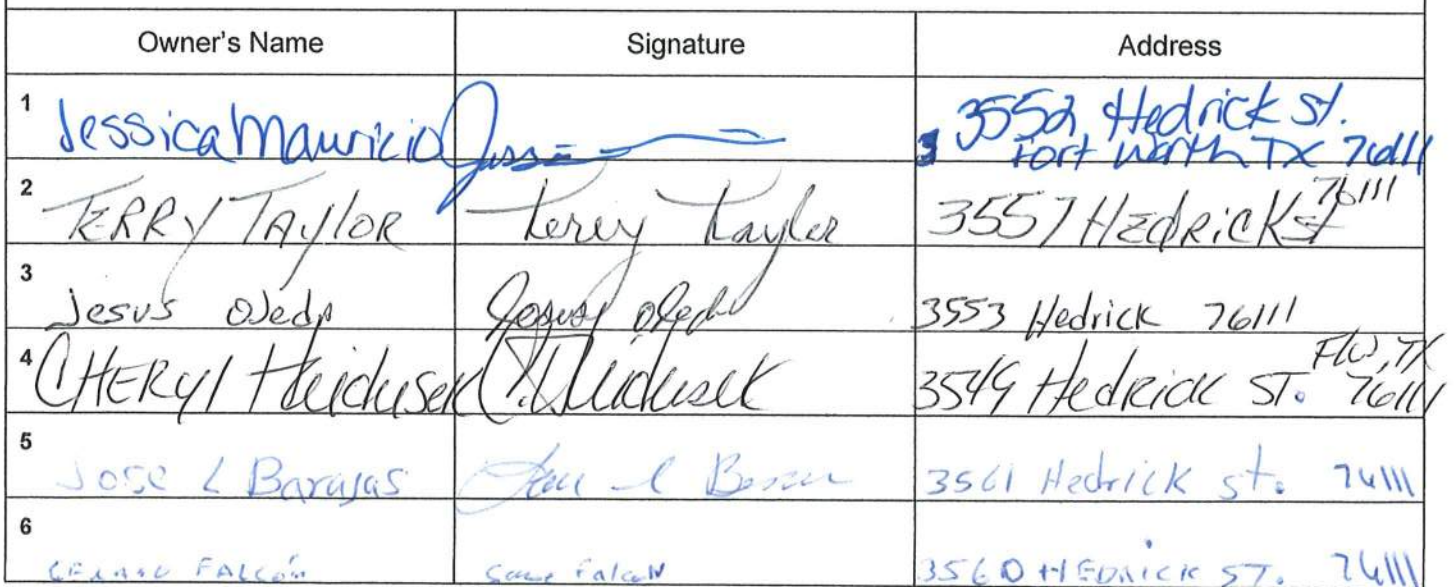 Owner's Name Signature Address
1 Jessica Mauricio 3552 Hedrick St.
Fort Worth TX 76111
2 TERRY TAylOR Terry Taylor 3557 HEdRiCK St 76111
3 Jesus Ojeda Jesus Ojeda 3553 Hedrick 76111
4 CHERyl Heidusek C. Heidusek 3549 Hedrick ST. FW, TX 76111
5 Jose L Barajas 3561 Hedrick st. 76111
6 FALCÓN Falcon 3560 HEDRICK ST. 76111